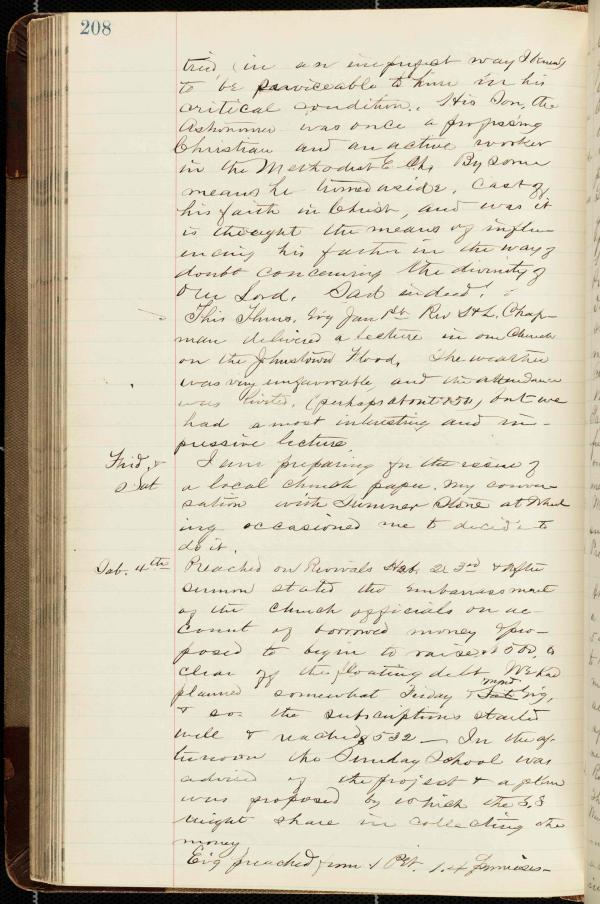 208
tried (in an imperfect way I know)
to be serviceable to him in his
critical condition. His Son, the
Astronomer was once a professing
Christian and an active worker
in the Methodist E. Ch. By some
means he turned aside, cast off
his faith in Christ, and was it
is thought the means of influ-
encing his father in the way of
doubt concerning the divinity of
Our Lord. Sad indeed!
This Thurs. Evg Jan 1st Rev Chap-
man delivered a lecture in our Church
on the Johnstown Flood. The weather
was very unfavorable, and the attendance
was limited, (perhaps about 150) but we
had a most interesting and im-
pressive lecture
Frid. &
Sat
I am preparing for the issue of
a local church paper. My conver-
sation with Sumner Stone at Wheel
ing occasioned me to decide to
do it.
Sab. 4th
Preached on Revivals Hab. 3rd & After
sermon stated the embarrassment
of the church officials on ac-
count of borrowed money & pro-
posed to begin to raise $500. to
clear off the floating debt. We had
planned somewhat Friday & Evg,
& so the subscriptions started
well & reached $532 — In the af-
ternoon the Sunday School was
advised of the project & a plan
was proposed by which the S.S
might share in collecting the
money
Evg preached from 1 Pet. 1.4 Promises-